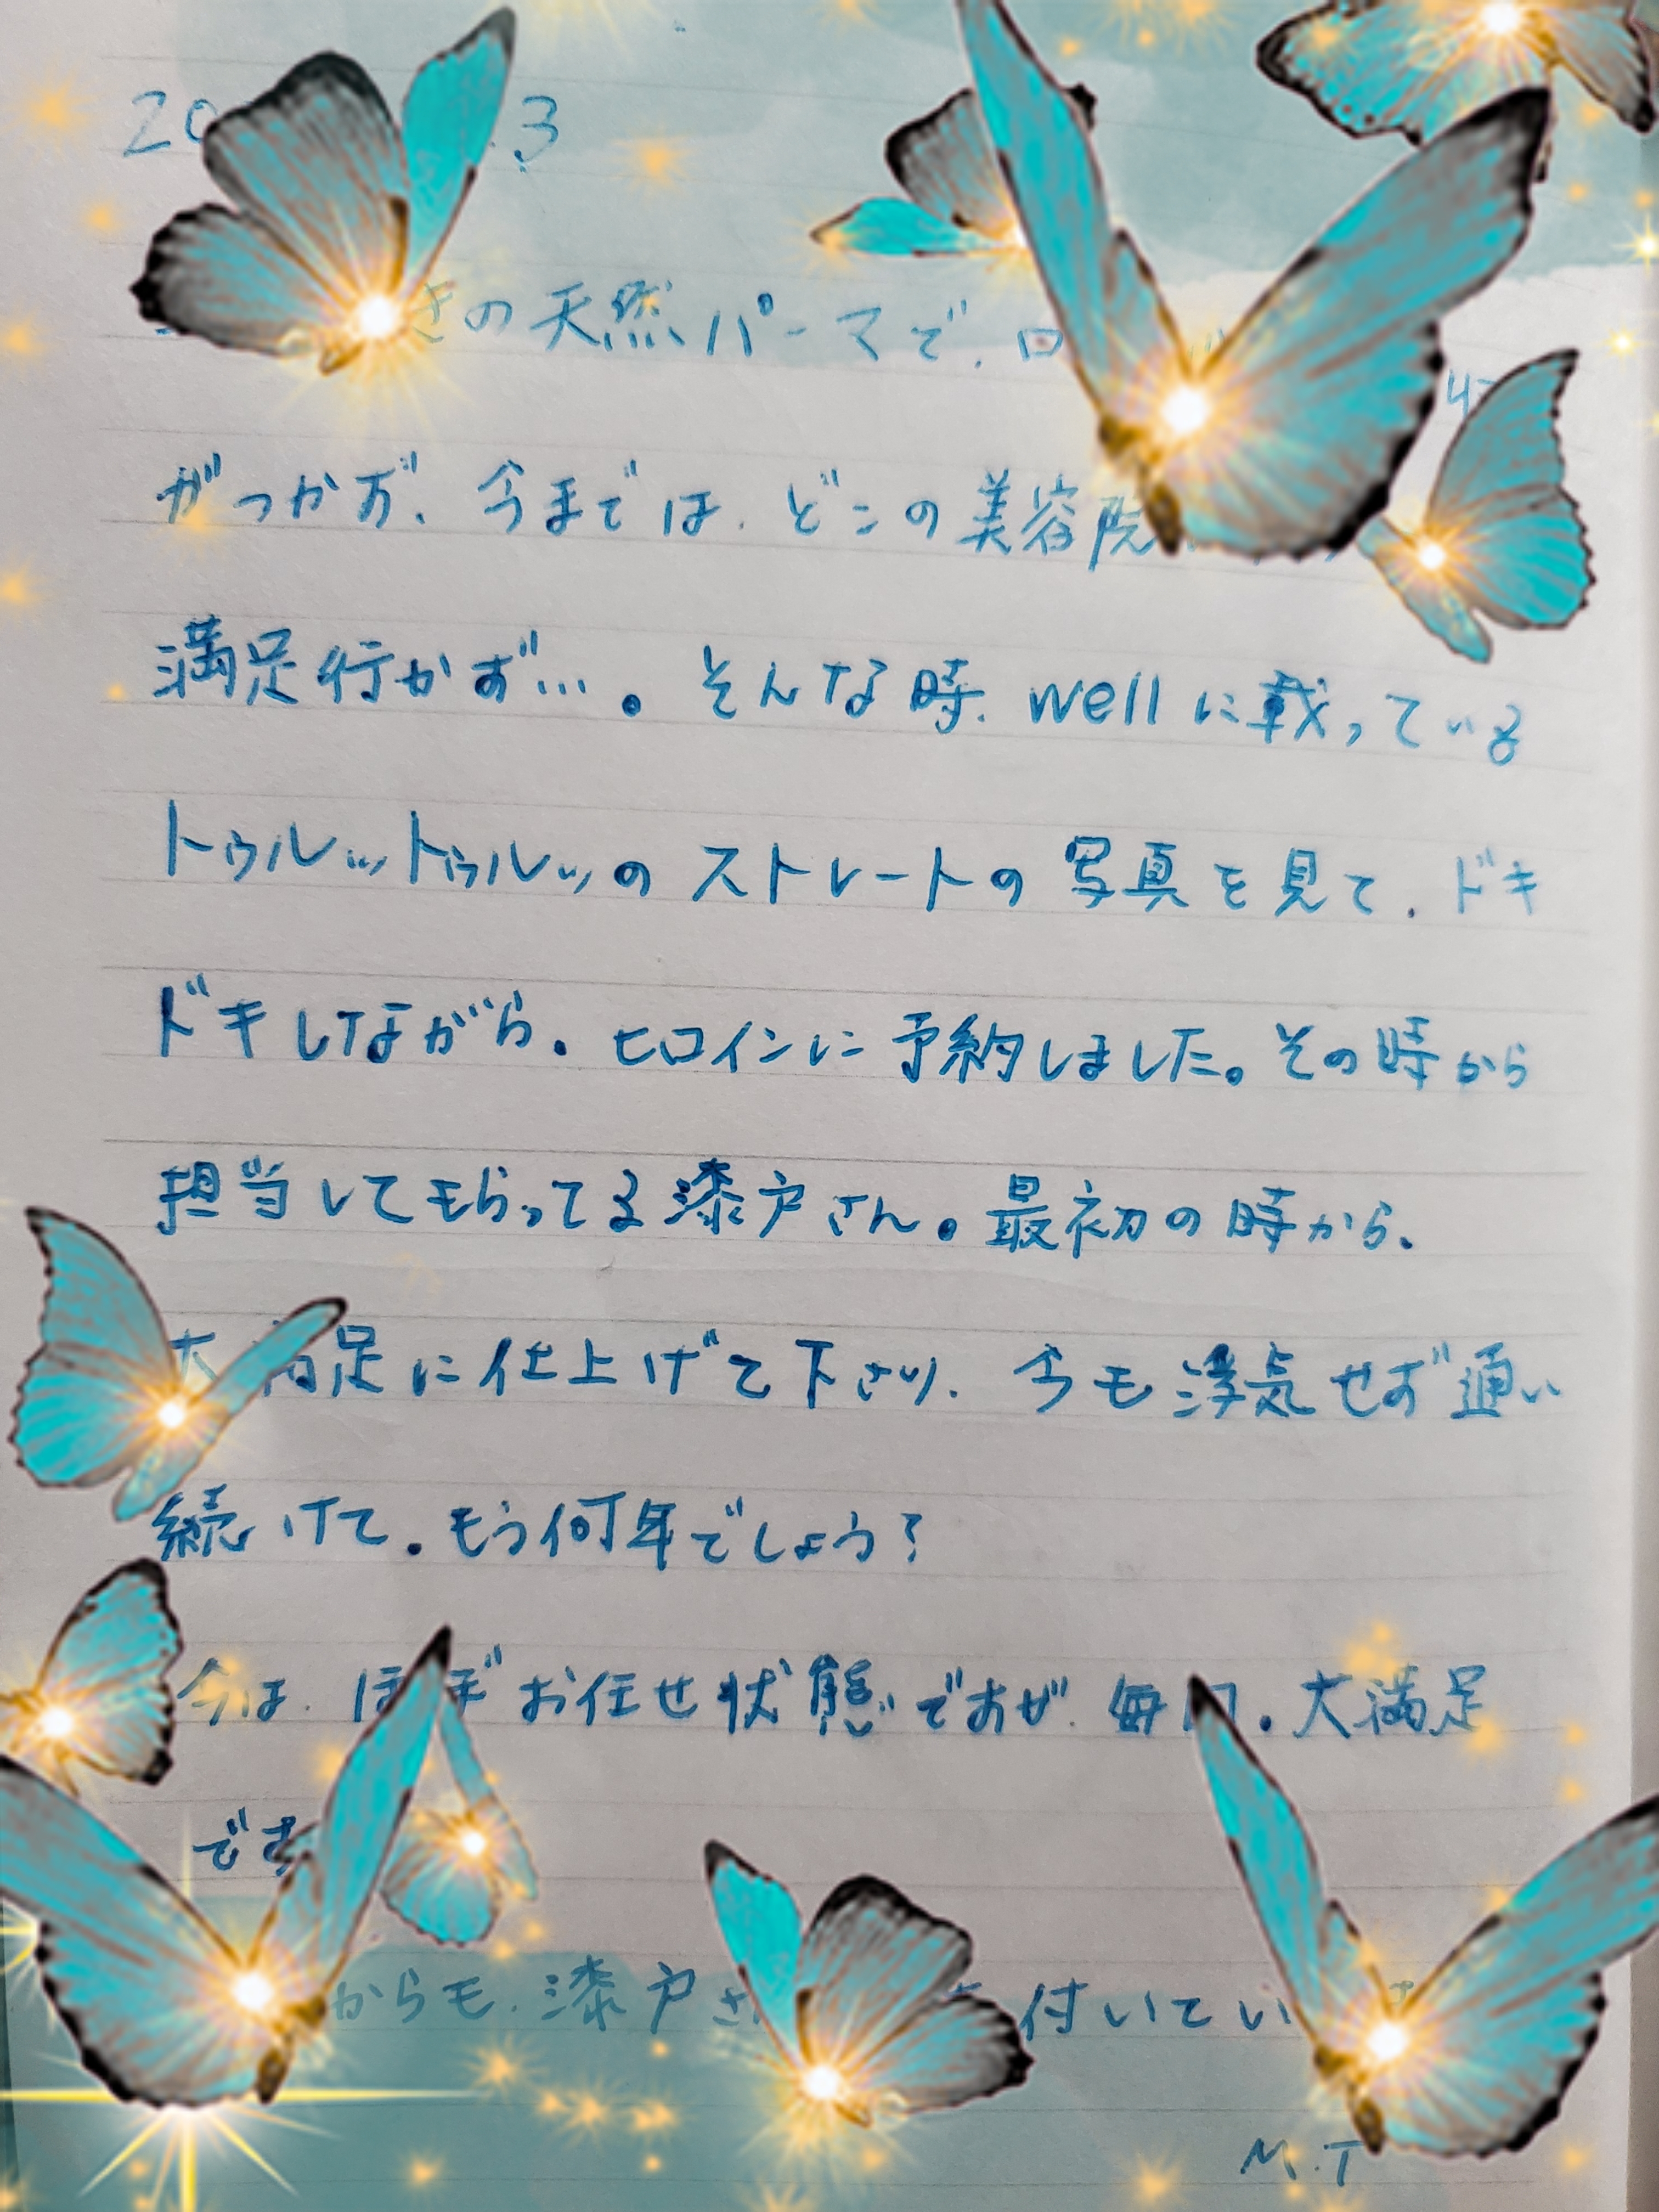 20 3
きの天然パーマで、ロ
がつかず、今までは、どこの美容院
満足行かず…。そんな時、wellに載っている
トゥルットゥルッのストレートの写真を見て、ドキ
ドキしながら、ヒロインに予約しました。その時から
担当してもらってる漆戸さん。最初の時から、
大満足に仕上げて下さり、今も浮気せず通い
続けて、もう何年でしょう?
今は、ほぼお任せ状態ですが、毎回、大満足
です
からも、漆戸さ 付いてい
M.T